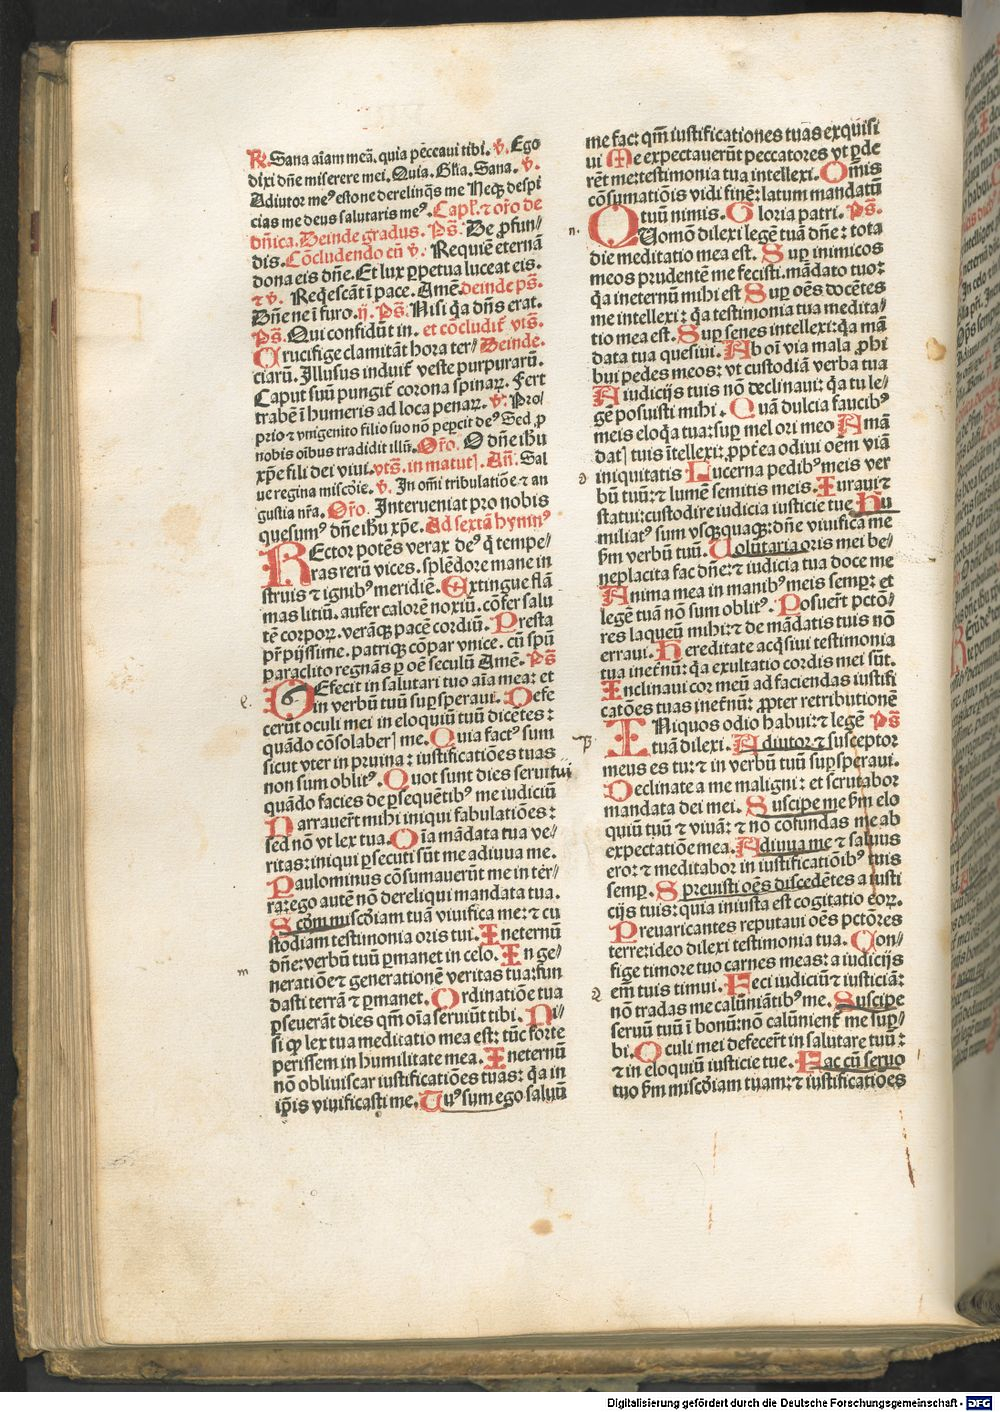 ℟. Sana aīam meā. quia peccaui tibi. ℣. Ego
dixi dn̄e miserere mei. Quia. Gl̄ia. Sana. ℣.
Adiutor meꝰ estone derelinq̄s me Neqꝫ despi
cias me deus salutaris meꝰ. Capl. ⁊ or̄o de
dn̄ica. Deinde gradus. Ps̄. De ꝓfun⸗
dis. Cōcludendo cū ℣. Requiē eternā
dona eis dn̄e. Et lux ꝑpetua luceat eis.
⁊ ℣. Reqescāt ī pace. Amē. deinde ps̄.
Dn̄e ne ī furo. ij. Ps̄. Nisi q̄a dn̄s erat.
Ps̄. Qui confidūt in. et cōcludit̄ vīs.
Crucifige clamitāt hora ter⸗ Deinde.
ciarū. Illusus induit̄ veste purpurarū.
Caput suū pungit̄ corona spinaꝝ. Fert
trabē ī humeris ad loca penaꝝ. ℣. Pro⸗
prio ⁊ vnigenito filio suo nō peꝑcit deꝰ Sed ꝓ
nobis oībus tradidit illū. Or̄o. O dn̄e ihu
xp̄e fili dei viui. vts̄. in matutꝭ. An̄. Sal
ue regina miscd̄ie. ℣. In om̄i tribulatiōe ⁊ an
gustia nr̄a. Or̄o. Interueniat pro nobis
quesumꝰ dn̄e ihu xp̄e. Ad sextā hymnꝰ
Rector potēs verax deꝰ q̄ tempe⸗
ras rerū vices. splēdore mane in
struis ⁊ ignibꝰ meridiē. Extingue flā
mas litiū. aufer calorē noxiū. cōfer salu
tē corpoꝝ. verāqꝫ pacē cordiū. Presta
pr̄ pijssime. patriqꝫ cōpar vnice. cū spū
paraclito regnās ꝑ oē seculū Amē. Ps̄
Defecit in salutari tuo aīa mea: et
in verbū tuū suꝑsperaui. Defe
cerūt oculi mei in eloquiū tuū dicētes:
quādo cōsolaberꝭ me. Quia factꝰ sum
sicut vter in pruina: iustificatiōes tuas
non sum oblitꝰ. Quot sunt dies serui tui
quādo facies de ꝑsequētibꝰ me iudiciū
Narrauert̄ mihi iniqui fabulatiōes:
sed nō vt lex tua. Oīa mādata tua ve⸗
ritas: iniqui ꝑsecuti sūt me adiuua me.
Paulominus cōsumauerūt me in ter⸗
ra: ego autē nō dereliqui mandata tua.
Scd̄m miscd̄iam tuā viuifica me: ⁊ cu
stodiam testimonia oris tui. Ineternū
dn̄e: verbū tuū ꝑmanet in celo. In ge⸗
neratiōe ⁊ generationē veritas tua: fun
dasti terrā ⁊ ꝑmanet. Ordinatiōe tua
ꝑseuerāt dies qm̄ oīa seruiūt tibi. Ni⸗
si ꝙ lex tua meditatio mea est: tūc forte
perissem in humilitate mea. Ineternū
nō obliuiscar iustificatiōes tuas: q̄a in
ip̄is viuificasti me. Tuꝰ sum ego saluū
me fac: qm̄ iustificationes tuas exquisi
ui Me expectauerūt peccatores vt ꝑde
rēt me: testimonia tua intellexi. Om̄is
cōsumatiōis vidi finē: latum mandatū
tuū nimis. Gloria patri. Ps̄.
Quomō dilexi legē tuā dn̄e: tota
die meditatio mea est. Suꝑ inimicos
meos prudentē me fecisti. mādato tuo:
q̄a ineternū mihi est Suꝑ oēs docētes
me intellexi: q̄a testimonia tua medita⸗
tio mea est. Suꝑ senes intellexi: q̄a mā
data tua quesiui. Ab oī via mala ꝓhi
bui pedes meos: vt custodiā verba tua
A iudicijs tuis nō declinaui: q̄a tu le⸗
gē posuisti mihi. Quā dulcia faucibꝰ
meis eloq̄a tua: suꝑ mel ori meo A mā
datꝭ tuis ītellexi: ꝓpt̄ea odiui oēm viā
iniquitatis Lucerna pedibꝰ meis ver
bū tuū: ⁊ lumē semitis meis. Iuraui ⁊
statui: custodire iudicia iusticie tue Hu
miliatꝰ sum vsqꝫquaqꝫ: dn̄e viuifica me
ẜm verbū tuū. Voluntaria oris mei be⸗
neplacita fac dn̄e: ⁊ iudicia tua doce me
Anima mea in manibꝰ meis semꝑ: et
legē tuā nō sum oblitꝰ. Posuert̄ pctō⸗
res laqueū mihi: ⁊ de mādatis tuis nō
erraui. Hereditate acq̄siui testimonia
tua inet̄nū: q̄a exultatio cordis mei sūt.
Inclinaui cor meū ad faciendas iustifi
catōes tuas inet̄nū: ꝓpter retributionē
Iniquos odio habui: ⁊ legē Ps̄
tuā dilexi. Adiutor ⁊ susceptor
meus es tu: ⁊ in verbū tuū suꝑsperaui.
Declinate a me maligni: et scrutabor
mandata dei mei. Suscipe me ẜm elo
quiū tuū ⁊ viuā: ⁊ nō cōfundas me ab
expectatiōe mea. Adiuua me ⁊ saluus
ero: ⁊ meditabor in iustificatiōibꝰ tuis
semꝑ. Spreuisti oēs discedētes a iusti
cijs tuis: quia iniusta est cogitatio eoꝝ.
Preuaricantes reputaui oēs pctōres
terre: ideo dilexi testimonia tua. Con⸗
fige timore tuo carnes meas: a iudicijs
em̄ tuis timui. Feci iudiciū ⁊ iusticiā:
nō tradas me calūniātibꝰ me. Suscipe
seruū tuū ī bonū: nō calūnient̄ me suꝑ⸗
bi. Oculi mei defecert̄ in salutare tuū:
⁊ in eloquiū iusticie tue. Fac cū seruo
tuo ẜm miscd̄iam tuam: ⁊ iustificatiōes
Digitalisierung gefördert durch die Deutsche Forschungsgemeinschaft - DFG